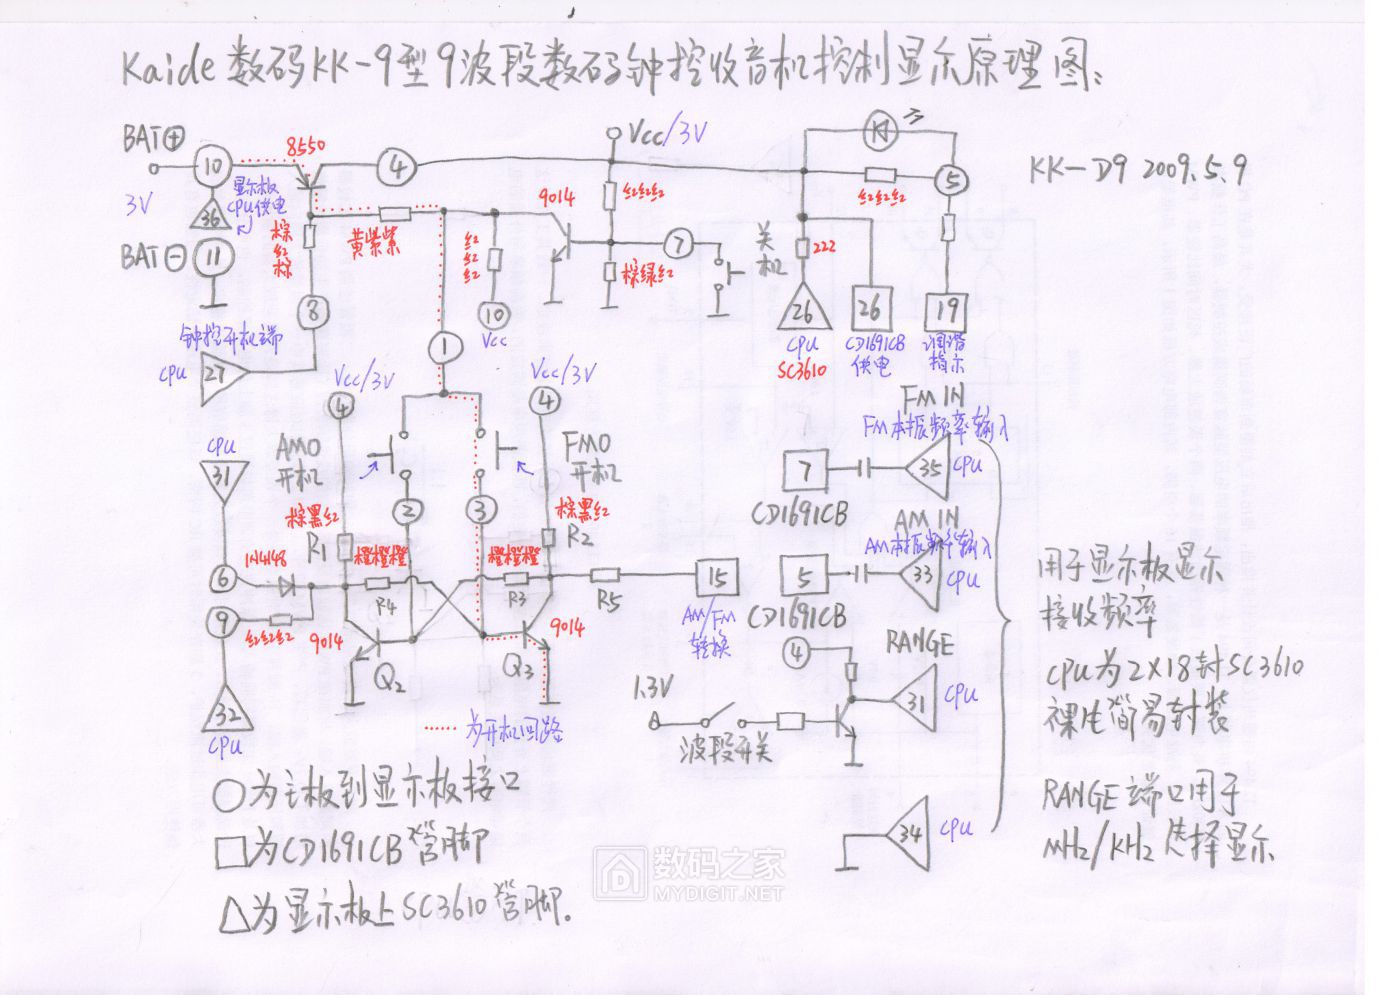 Kaide数码KK-9型9波段数码钟控收音机控制显示原理图:
KK-D9 2009.5.9
BAT⊕
3V
BAT⊖
10
36
11
显示板
CPU供电
8550
4
棕红棕
黄紫紫
8
钟控开机端
CPU
27
红红红
10
Vcc
9014
Vcc/3V
红红红
棕绿红
7
关机
222
26
CPU
SC3610
26
CD1691CB
供电
红红红
5
19
调谐
指示
1
Vcc/3V
4
Vcc/3V
4
AM0
开机
FM0
开机
2
3
CPU
31
6
1N4148
棕黑红
R1
橙橙橙
R4
橙橙橙
R3
棕黑红
R2
R5
15
AM/FM
转换
9
红红红
9014
Q2
Q3
9014
32
CPU
为开机回路
FM IN
FM本振频率输入
7
CD1691CB
35
CPU
AM IN
AM本振频率输入
5
CD1691CB
33
CPU
RANGE
4
1.3V
波段开关
31
CPU
34
CPU
用于显示板显示
接收频率
CPU为2X18封SC3610
裸片简易封装
RANGE端口用于
MHz/KHz选择显示
○为主板到显示板接口
□为CD1691CB管脚
△为显示板上SC3610管脚.
数码之家
MYDIGIT.NET